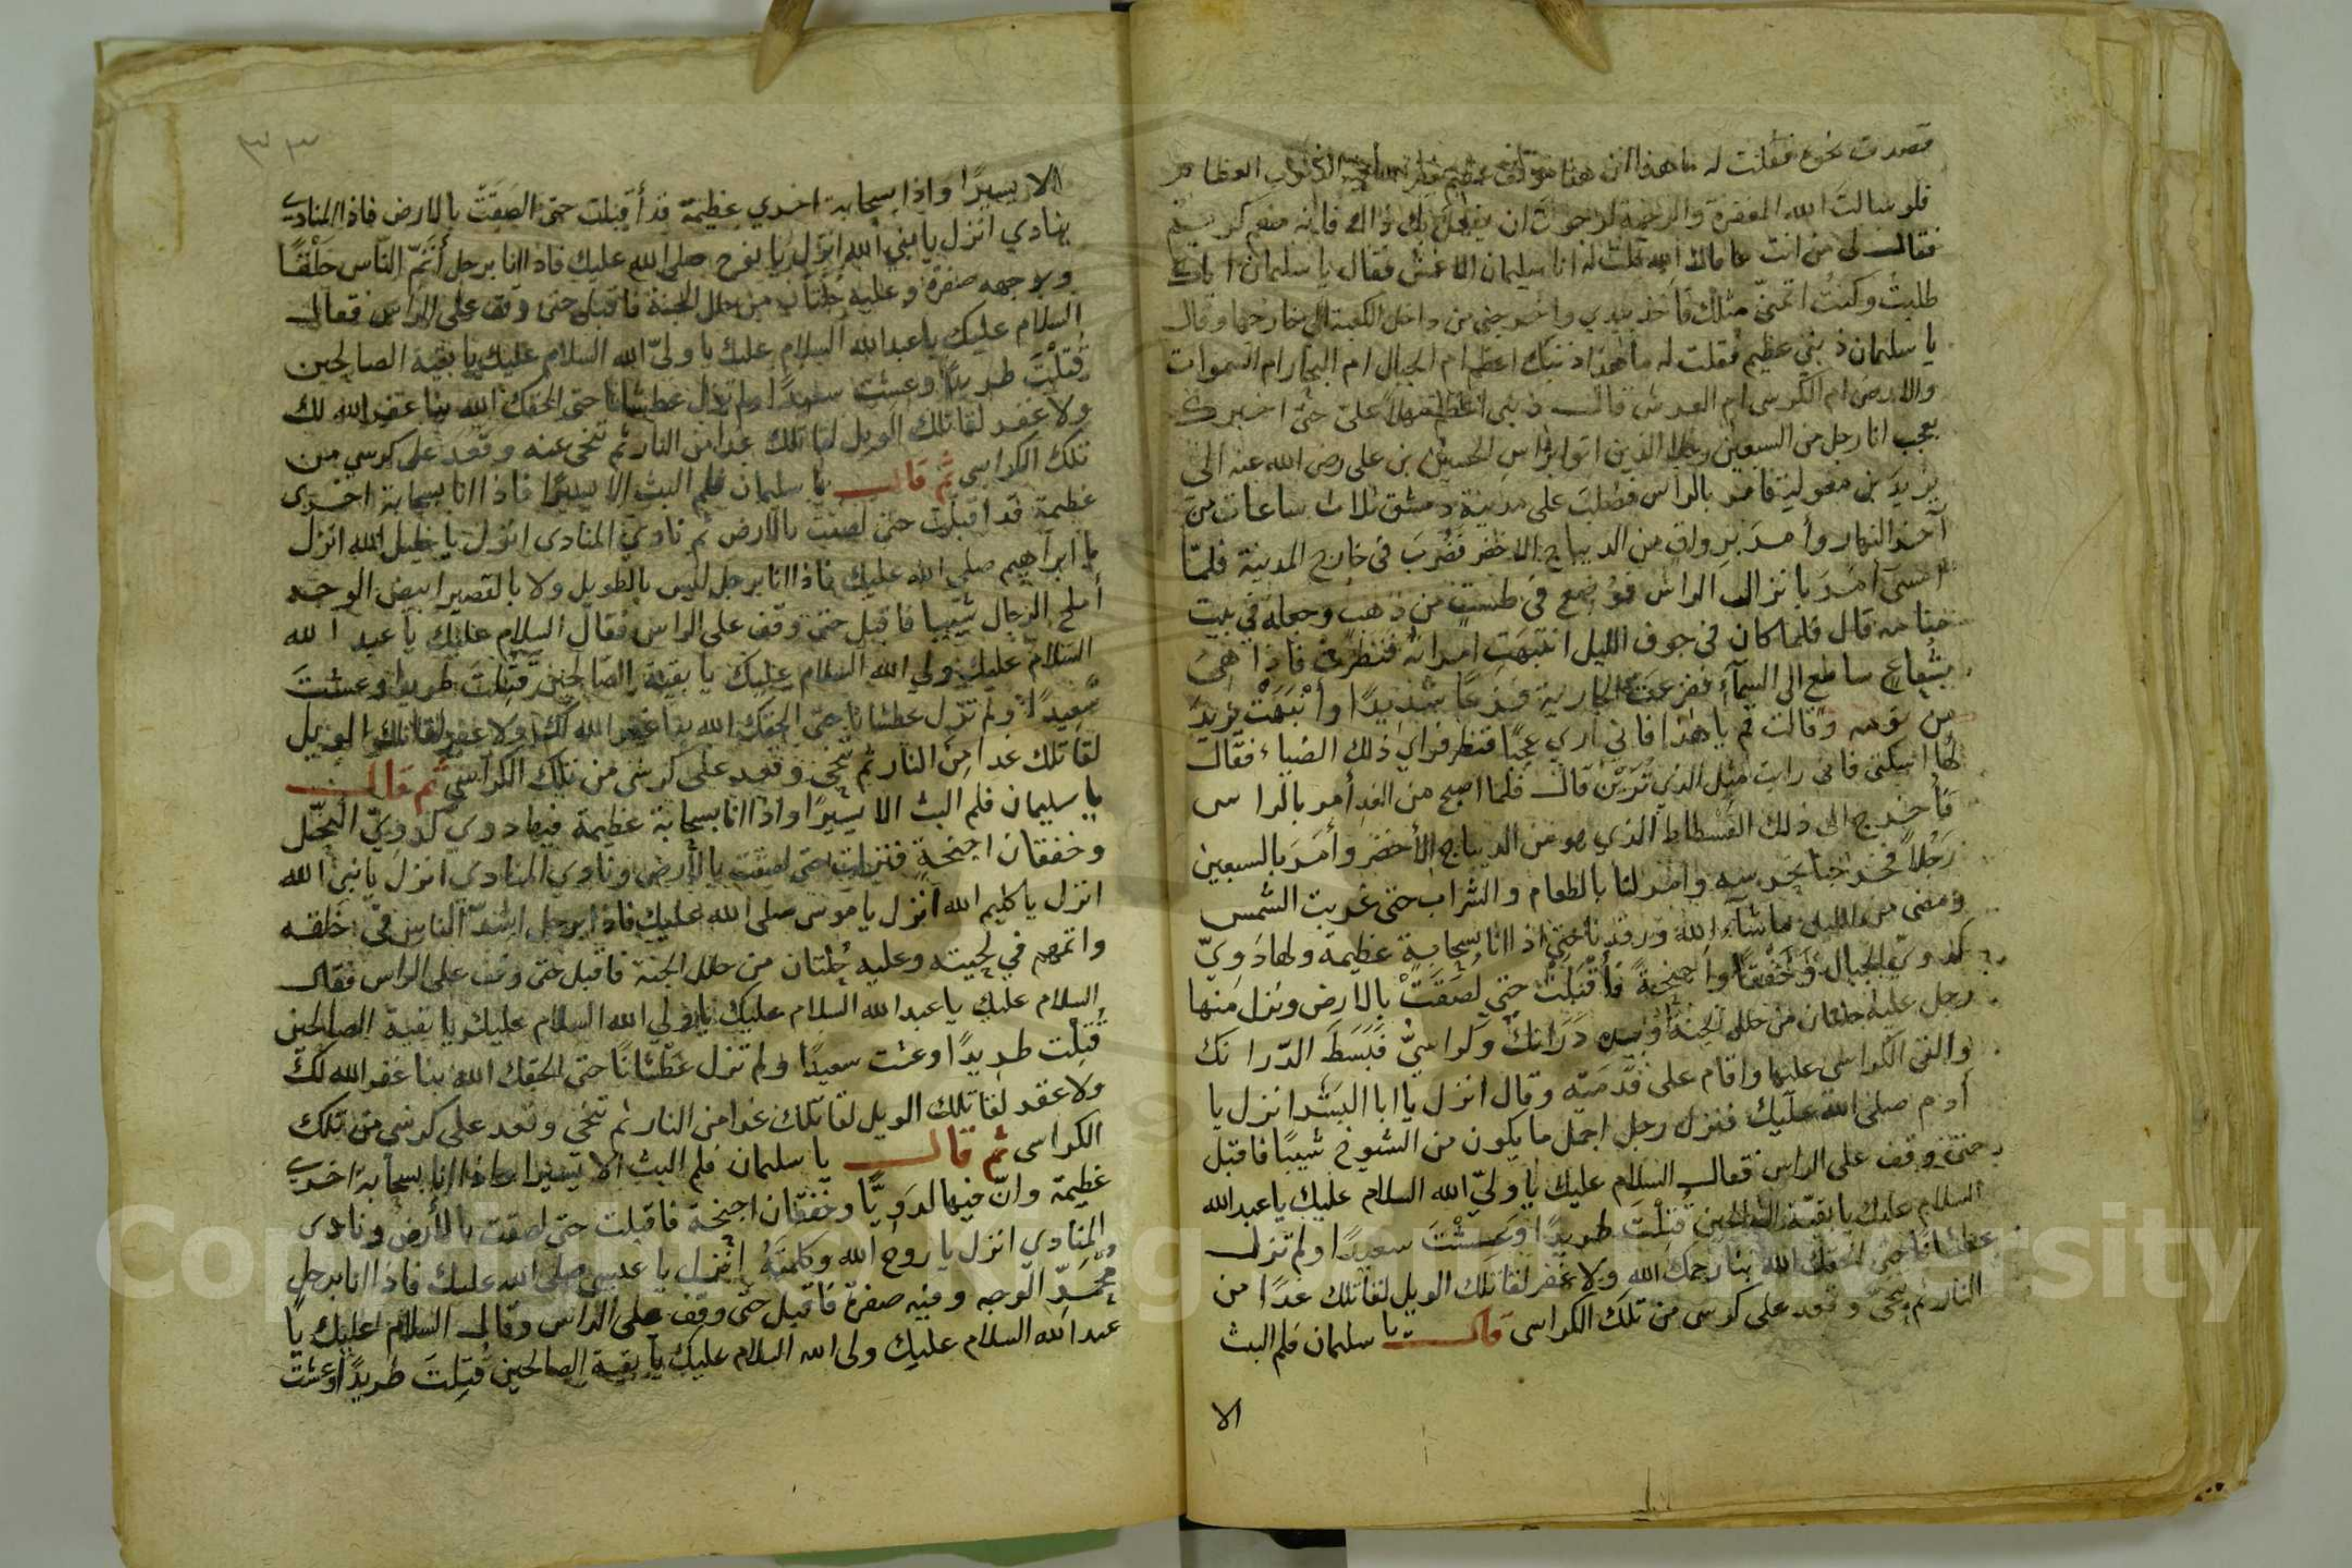 قصدت نحوه فقلت له ما هذا ان هذا موقف عظيم الذنوب العظام
فلو سالت الله المغفرة والرحمة لرجوت ان يفعل بك ذاك فانه منعم كريم
فقال لى من انت عافاك الله قلت له انا سليمان الاعمش فقال يا سليمان اياك
طلبت وكنت اتمنى مثلك فاخذ بيدي واخرجني من داخل الكعبة الى خارجها وقال
يا سليمان ذنبي عظيم فقلت له ما هذا ذنبك اعظم ام الجبال ام البحار ام السموات
والارض ام الكرسى ام العرش قال ذنبى اعظم مهلا على حتى اخبرك
بعجب انا رجل من السبعين رجلا الذين اتوا براس الحسين بن على رضى الله عنه الى
يزيد بن معوية فامر بالراس فصلب على مدينة دمشق ثلاث ساعات من
آخر النهار وأمر برواق من الديباج الاخضر فضرب في خارج المدينة فلما
امسى أمر بانزال الراس فوضع في طست من ذهب وجعله في بيت
منامه قال فلما كان في جوف الليل انتبهت امراته فنظرت فاذا هى
بشعاع ساطع الى السمآء ففزعت الجارية فزعا شديدًا وأنبهت يزيد
من نومه وقالت قم يا هذا فاني أري عجبًا فنظر فراي ذلك الضياء فقال
لها اسكتى فانى رايت مثل الذي تَرَيْنَ قال فلما اصبح من الغد أمر بالراس
فأخرج الى ذلك الفسطاط الذي هو من الديباج الأخضر وأمر بالسبعين
رَجُلاً فخرجنا نحرسه وامر لنا بالطعام والشراب حتى غربت الشمس
ومضى من الليل ماشآء الله ورقدنا حتى اذا انا بسحابة عظيمة ولها دويّ
كدويّ الجبال وَخَفْقًا واجنحةً فأقبلت حتى لصقت بالارض ونزل منها
رجل عليه حلتان من حلل الجنة وبيده دَرَانك وكراسيّ فبسط الدرانك
والقى الكراسى عليها واقام على قدميه وقال انزل يا ابا البشر انزل يا
أدم صلى الله عليك فنزل رجل اجمل ما يكون من الشيوخ شيبًا فاقبل
حتى وقف على الراس فقال السلام عليك يا وليّ الله السلام عليك يا عبد الله
السلام عليك يا بقية الصالحين قُتِلْتَ طريدًا وَعشْتَ سعيدًا ولم تزل
عطشانا حتى الحقك الله بنا رحمك الله ولا غفر لقاتلك الويل لقاتلك غدًا من
النار ثم تنحى وقعد على كرسى من تلك الكراسى قال يا سليمان فلم البث
الا
٣٣
الا يسيرًا واذا بسحابة اخري عظيمة قد أقبلت حتى لصَقَتْ بالارض فاذا المنادي
ينادي انزل يا نبي الله انزل يا نوح صلى الله عليك فاذا انا برجل أتمّ الناس خَلْقًا
وبوجهه صفرة وعليه حلتان من حلل الجنة فاقبل حتى وقف على الراس فقال
السلام عليك يا عبد الله السلام عليك يا ولىّ الله السلام عليك يا بقية الصالحين
قُتِلْتَ طريدًا وعشت سعيدًا ولم تزل عطشانا حتى الحقك الله بنا غفر الله لك
ولا غفر لقاتلك الويل لقاتلك غدا من النار ثم تنحى عنه وقعد على كرسي من
تلك الكراسى ثم قال يا سليمان فلم البث الا يسيرًا فاذا انا بسحابة اخرى
عظيمة قد اقبلت حتى لصقت بالارض ثم نادي المنادى انزل يا خليل الله انزل
يا ابراهيم صلى الله عليك فاذا انا برجل ليس بالطويل ولا بالقصير ابيض الوجه
أملح الرجال شيبا فاقبل حتى وقف على الراس فقال السلام عليك يا عبد الله
السلام عليك ولي الله السلام عليك يا بقية الصالحين قتلت طريدا وعشت
سعيدًا ولم تزل عطشانا حتى الحقك الله بنا غفر الله لك ولا غفر لقاتلك الويل
لقاتلك غدا من النار ثم تنحى وقعد على كرسى من تلك الكراسي ثم قال
يا سليمان فلم البث الا يسيرًا واذا انا بسحابة عظيمة فيها دوي كدويّ النحل
وخفقان اجنحة فنزلت حتى لصقت بالأرض ونادي المنادي انزل يا نبي الله
انزل يا كليم الله انزل يا موسى صلى الله عليك فاذا برجل اشدّ الناس في خلقه
واتمهم في لحيته وعليه حُلتان من حلل الجنة فاقبل حتى وقف على الراس فقال
السلام عليك يا عبد الله السلام عليك يا ولي الله السلام عليك يا بقية الصالحين
قُتِلْت طريدًا وعشت سعيدًا ولم تزل عَطْشانًا حتى الحقك الله بنا غفر الله لكَ
ولا غفر لقاتلك الويل لقاتلك غدا من النار ثم تنحى وقعد على كرسى من تلك
الكراسى ثم قال يا سليمان فلم البث الا يسيرا واذا انا بسحابة اخري
عظيمة وانّ فيها لدَويًّا وخَفَقَان اجنحة فاقبلت حتى لصقت بالأرض ونادى
المنادي انزل يا روح الله وكلمتهُ إنزل يا عيسى صلى الله عليك فاذا انا برجل
مُحْمَرِّ الوجه وفيه صفرة فاقبل حتى وقف على الراس وقال السلام عليك يا
عبد الله السلام عليك ولى الله السلام عليك يا بقية الصالحين قُتِلتَ طريدًا وعشت